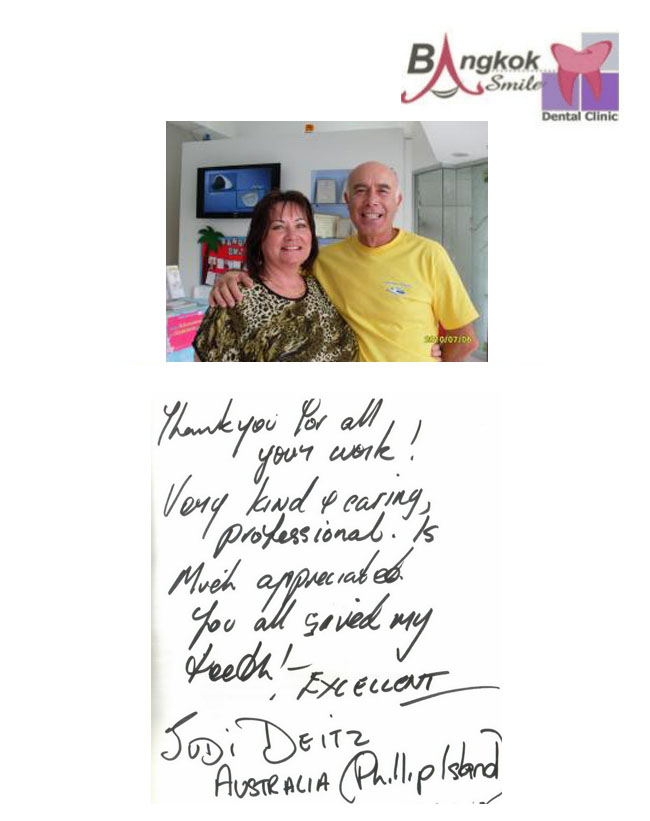 BAngkok
Smile
Dental Clinic
2010/07/06
Thank you for all
your work!
Very kind & caring,
professional. Is
Much appreciated.
You all saved my
teeth!–
EXCELLENT
JUDi DEITZ
AUSTRALIA (Phillip Island)